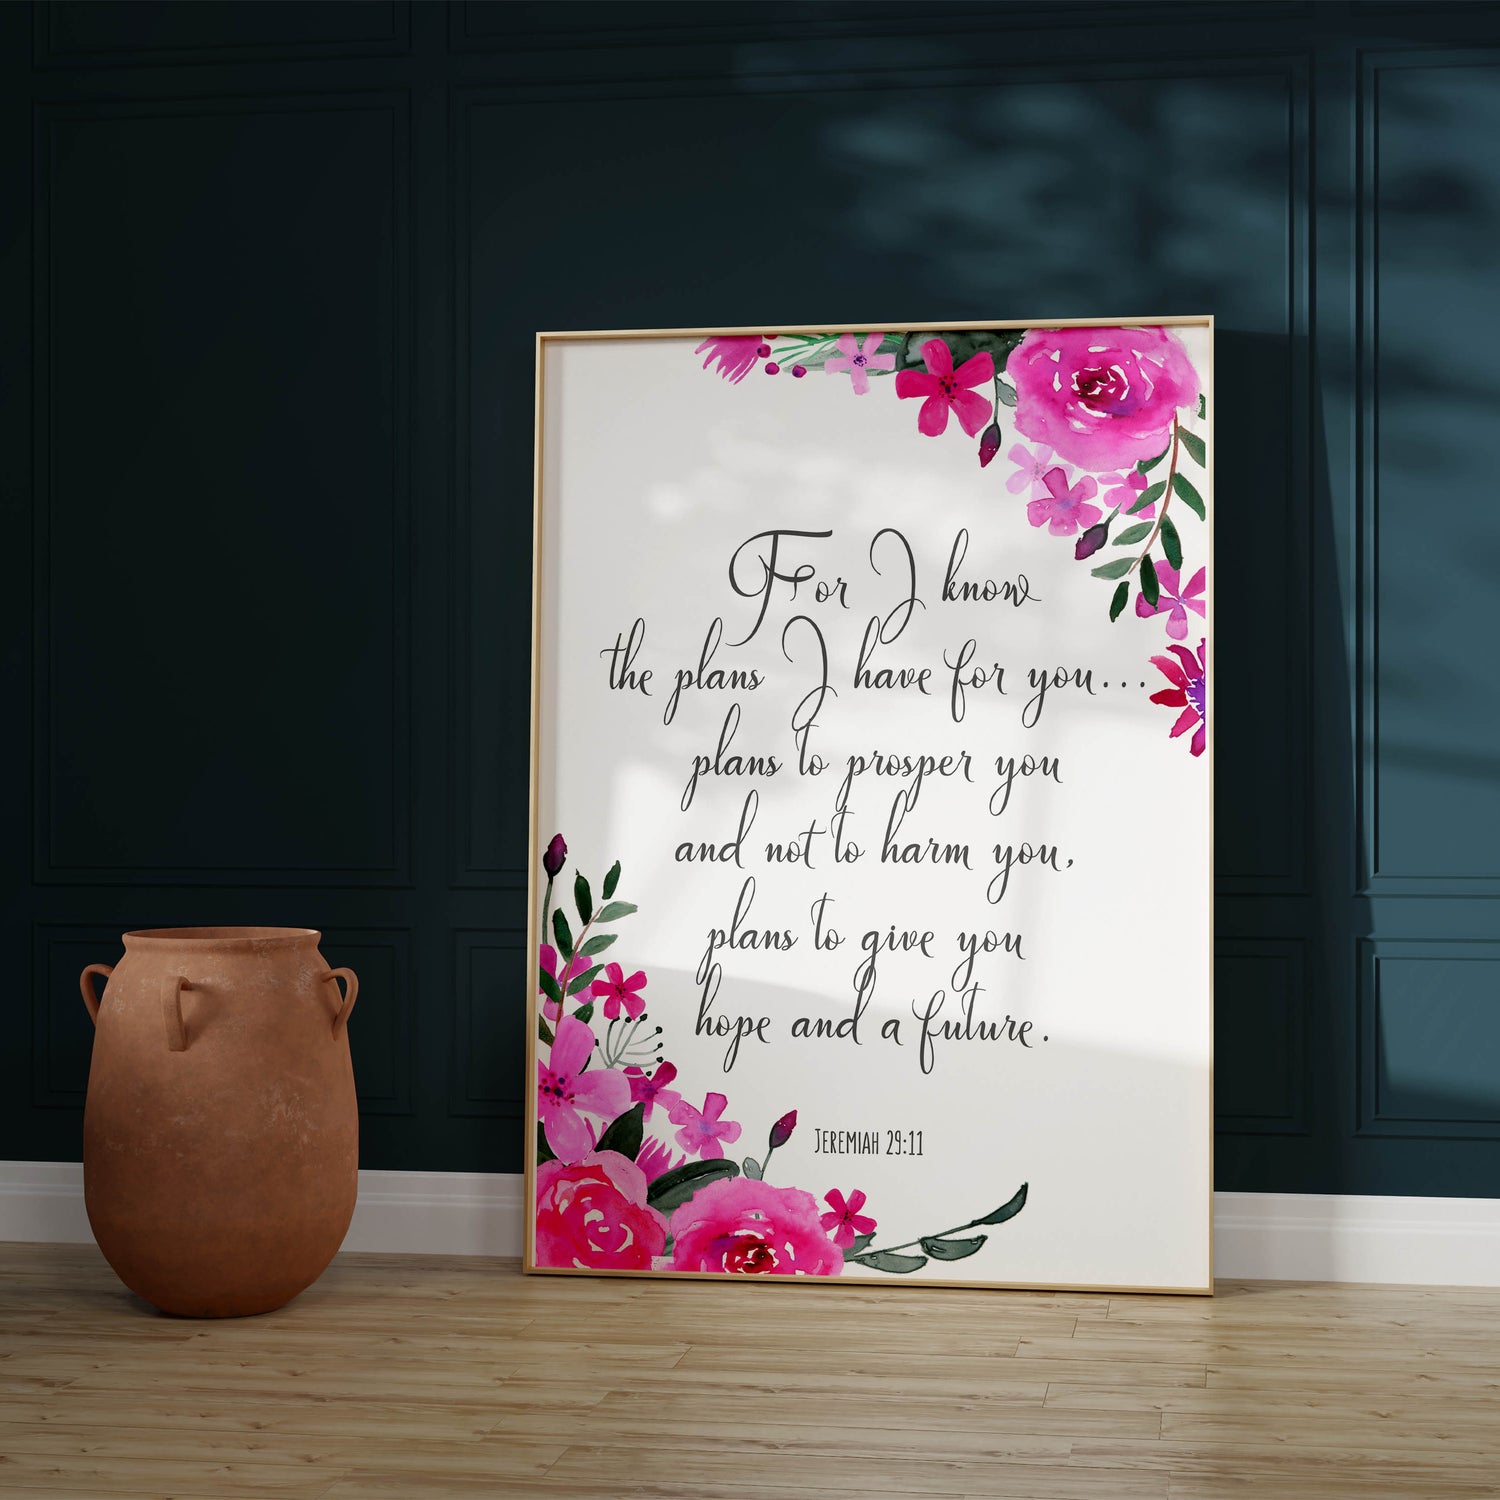 For I know
the plans I have for you...
plans to prosper you
and not to harm you,
plans to give you
hope and a future.
JEREMIAH 29:11